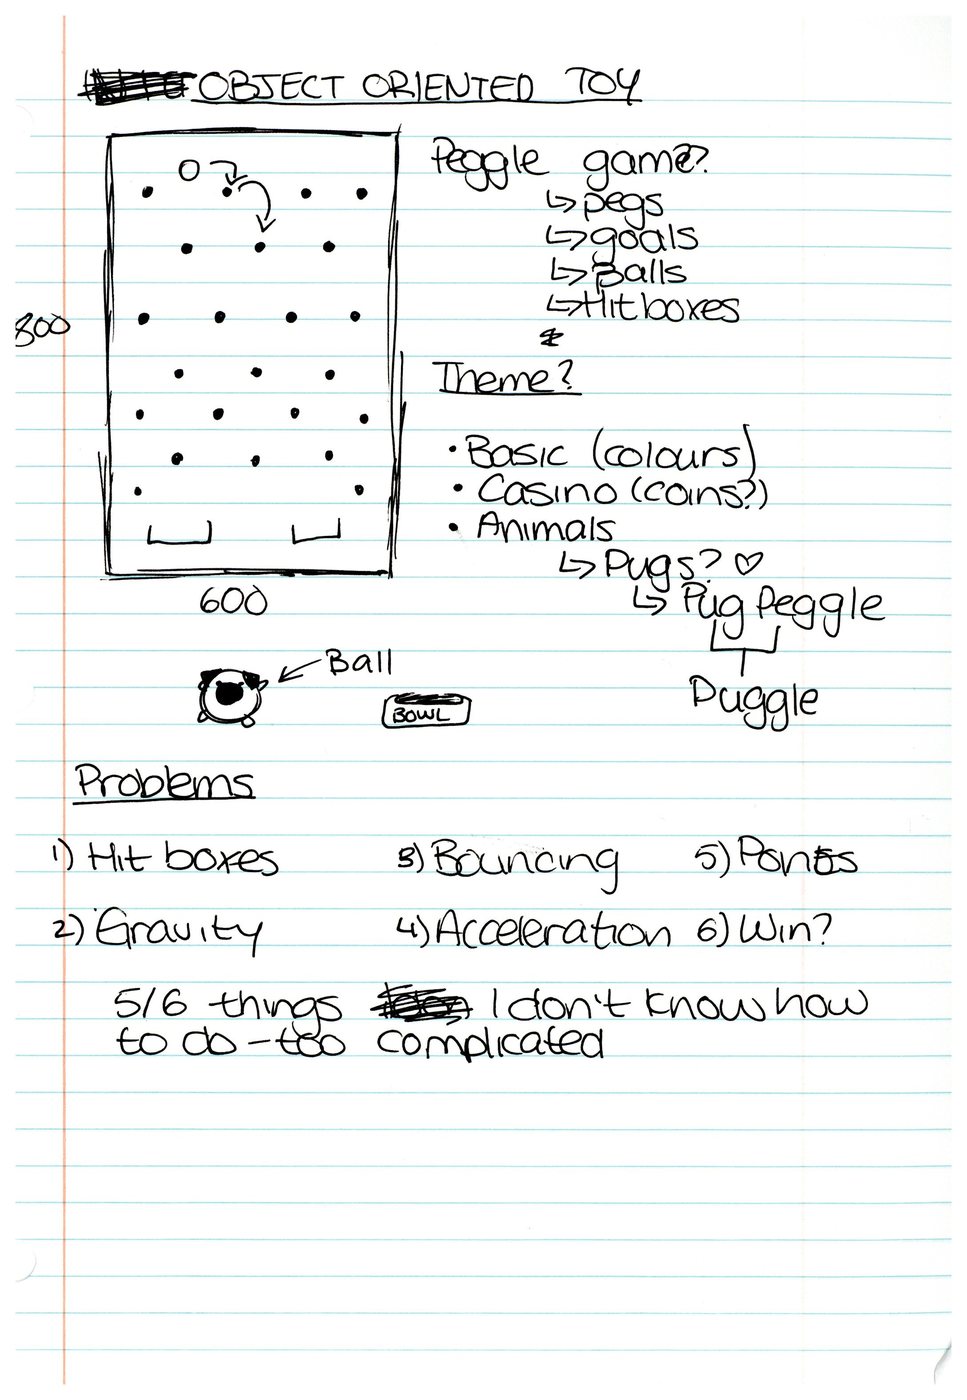 OBJECT ORIENTED TOY
Peggle game?
↳ pegs
↳ goals
↳ Balls
↳ Hit boxes
800
Theme?
• Basic (colours)
• Casino (coins?)
• Animals
↳ Pugs? ♡
↳ Pug Peggle
600
Puggle
Ball
BOWL
Problems
1) Hit boxes 3) Bouncing 5) Points
2) Gravity 4) Acceleration 6) Win?
5/6 things I don't know how
to do - too complicated